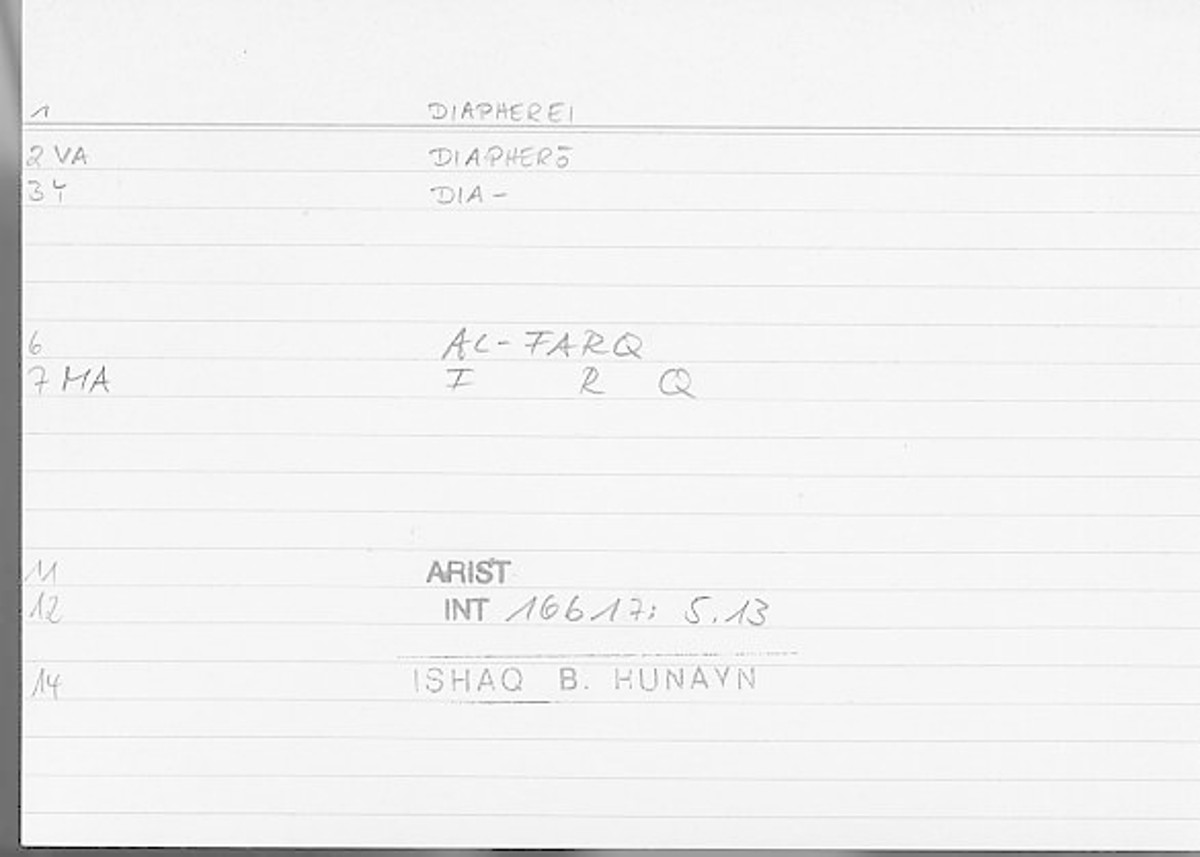 1 DIAPHEREI
2 VA DIAPHERŌ
3 Y DIA-
6 AL-FARQ
7 MA F R Q
11 ARIST
12 INT 16617: 5.13
14 ISHAQ B. HUNAYN